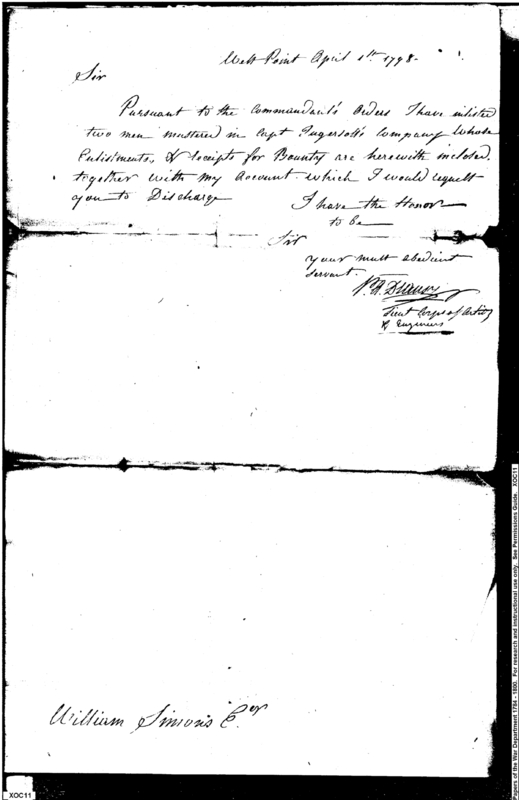 West Point April 1st 1798
Sir
Pursuant to the Commandant's Orders I have inlisted
two men mustered in Capt Ingersoll's Company whose
Enlistments, & receipts for Bounty are herewith inclosed,
together with my Account which I would request
you to Discharge
I have the Honor
to be
Sir
your most obedient
servant.
Lieut Corps of Artily
& Engineers
William Simons Esqr
XOC11
Papers of the War Department 1784 - 1800. For research and instructional use only. See Permissions Guide. XOC11